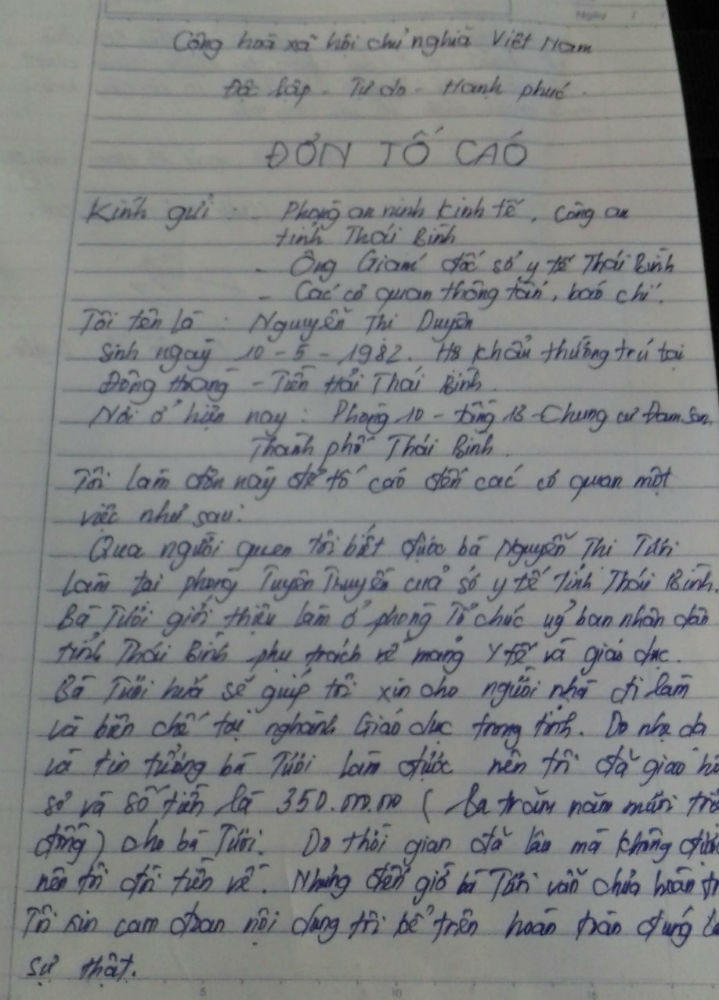 Cộng hoà xã hội chủ nghĩa Việt Nam
Độc lập - Tự do - Hạnh phúc.
ĐƠN TỐ CÁO
Kính gửi: - Phòng an ninh kinh tế, công an
tỉnh Thái Bình
- Ông Giám đốc sở y tế Thái Bình
- Các cơ quan thông tấn, báo chí.
Tôi tên là: Nguyễn Thị Duyên
Sinh ngày 10-5-1982. Hộ khẩu thường trú tại
Đông Hoàng - Tiền Hải Thái Bình.
Nơi ở hiện nay: Phòng 10 - tầng 18 - Chung cư Đam San,
Thành phố Thái Bình.
Tôi làm đơn này để tố cáo đến các cơ quan một
việc như sau:
Qua người quen tôi biết được bà Nguyễn Thị Tươi
làm tại phòng Tuyên Truyền của sở y tế tỉnh Thái Bình.
Bà Tươi giới thiệu làm ở phòng Tổ chức uỷ ban nhân dân
tỉnh Thái Bình phụ trách về mảng Y tế và giáo dục.
Bà Tươi hứa sẽ giúp tôi xin cho người nhà đi làm
và biên chế tại nghành Giáo dục trong tỉnh. Do nhẹ dạ
và tin tưởng bà Tươi làm được nên tôi đã giao hồ
sơ và số tiền là 350.000.000 (Ba trăm năm mươi
đồng) cho bà Tươi. Do thời gian đã lâu mà không
nên tôi đòi tiền về. Nhưng đến giờ bà Tươi vẫn chưa hoàn
Tôi xin cam đoan nội dung tôi kể trên hoàn toàn đúng
sự thật.